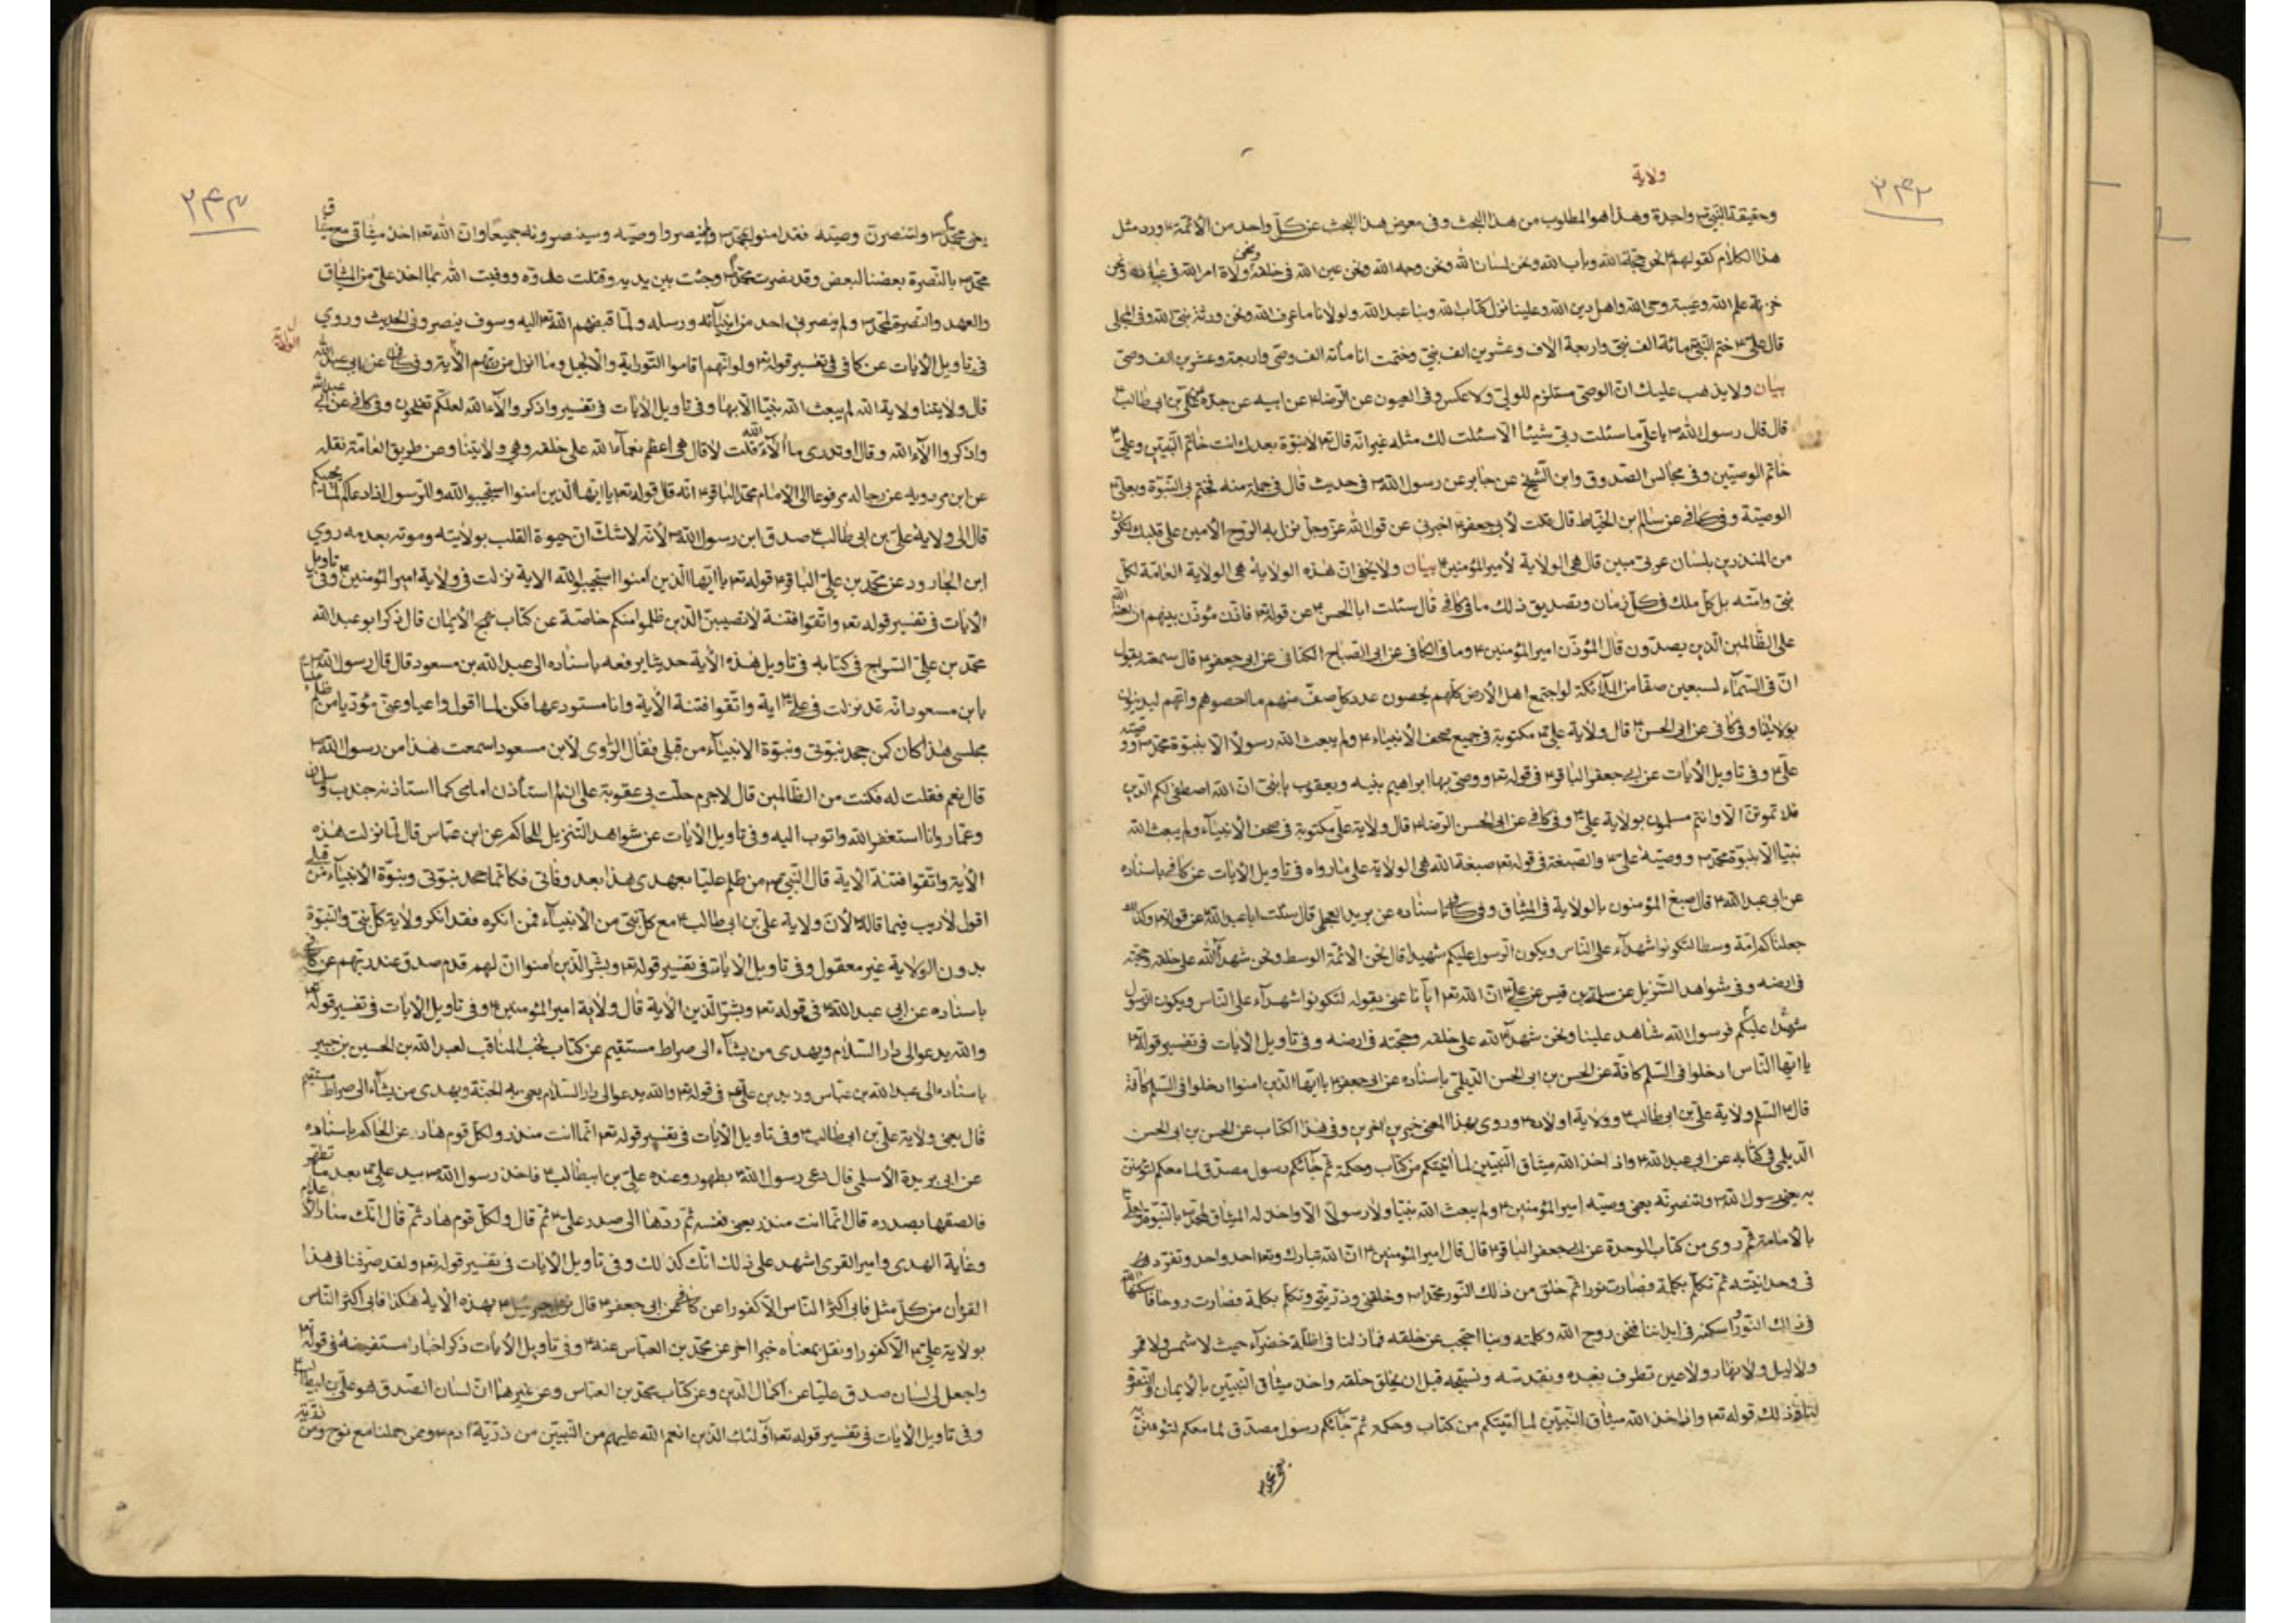 ولاية
٢۴٢
وحقيقة النبي ص واحدة وهذا هو المطلوب من هذا البحث وفي معرض هذا البحث عن كل واحد من الأئمة ع ورد مثل
هذا الكلام كقولهم ع نحن حجة الله وباب الله ونحن لسان الله ونحن وجه الله ونحن عين الله في خلقه ونحن ولاة امر الله في عباده ونحن
خزنة علم الله وعيبة وحي الله واهل دين الله وعلينا نزل كتاب الله وبنا عبد الله ولولانا ما عرف الله ونحن ورثة نبي الله وفي المجلى
قال علي ع ختم النبي ص مائة الف نبي واربعة الاف وعشرين الف نبي وختمت انا مأئة الف وصي واربعة وعشرين الف وصي
بيان ولا يذهب عليك ان الوصي مستلزم للولي ولا عكس وفي العيون عن الرضا ع عن ابيه عن جده عن علي بن ابي طالب ع
قال قال رسول الله ص يا علي ما سئلت ربي شيئا الا سئلت لك مثله غير انه قال تع لا نبوة بعدك انت خاتم النبيين وعلي ع
خاتم الوصيين وفي مجالس الصدوق وابن الشيخ عن جابر عن رسول الله ص في حديث قال في جملة منه فختم بي النبوة وبعلي ع
الوصية وفي كافي عن سالم بن الحناط قال قلت لأبي جعفر ع اخبرني عن قول الله عز وجل نزل به الروح الأمين على قلبك لتكون
من المنذرين بلسان عربي مبين قال هي الولاية لأمير المؤمنين ع بيان ولا يخفى ان هذه الولاية هي الولاية العامة لكل
نبي وامته بل كل ملك في كل زمان وتصديق ذلك ما في كافي قال سئلت ابا الحسن ع عن قوله تع فاذن مؤذن بينهم ان لعنة الله
على الظالمين الذين يصدون قال المؤذن امير المؤمنين ع وما في الكافي عن ابي الصباح الكناني عن ابي جعفر ع قال سمعته يقول
ان في السماء لسبعين صفا من الملائكة لو اجتمع اهل الأرض كلهم يحصون عدد كل صف منهم ما احصوهم وانهم ليدينون
بولايتنا وفي كافي عن ابي الحسن ع قال ولاية علي ع مكتوبة في جميع صحف الأنبياء ع ولم يبعث الله رسولا الا بنبوة محمد ص ووصية
علي ع وفي تاويل الأيات عن ابي جعفر الباقر ع في قوله تع ووصى بها ابراهيم بنيه ويعقوب يا بني ان الله اصطفى لكم الدين
فلا تموتن الا وانتم مسلمون بولاية علي ع وفي كافي عن ابي الحسن الرضا ع قال ولاية علي مكتوبة في صحف الأنبياء ولم يبعث الله
نبيا الا بنبوة محمد ص ووصيه علي ع والصبغة في قوله تع صبغة الله هي الولاية على ما رواه في تاويل الأيات عن كافي باسناده
عن ابي عبد الله ع قال صبغ المؤمنون بالولاية في الميثاق وفي كافي باسناده عن بريد العجلي قال سئلت ابا عبد الله ع عن قوله تع وكذلك
جعلناكم امة وسطا لتكونوا شهدآء على الناس ويكون الرسول عليكم شهيدا قال نحن الأئمة الوسط ونحن شهدآء الله على خلقه وحجته
في ارضه وفي شواهد التنزيل عن سليم بن قيس عن علي ع ان الله تع ايانا عنى بقوله لتكونوا شهدآء على الناس ويكون الرسول
شهيدا عليكم فرسول الله شاهد علينا ونحن شهدآء الله على خلقه وحجته في ارضه وفي تاويل الأيات في تفسير قوله تع
يا ايها الناس ادخلوا في السلم كافة عن الحسن بن ابي الحسن الديلمي باسناده عن ابي جعفر ع يا ايها الذين امنوا ادخلوا في السلم كافة
قال ع السلم ولاية علي بن ابي طالب ع وولاية اولاده ع وروي بهذا المعنى خبرين اخرين وفي هذا الكتاب عن الحسن بن ابي الحسن
الديلمي في كتابه عن ابي عبد الله ع واذ اخذ الله ميثاق النبيين لما أتيتكم من كتاب وحكمة ثم جائكم رسول مصدق لما معكم لتؤمنن
به يعني رسول الله ص ولتنصرنه يعني وصيه امير المؤمنين ع ولم يبعث الله نبيا ولا رسولا الا واخذ له الميثاق لمحمد ص بالنبوة ولعلي ع
بالأمامة ثم روى من كتاب الوحدة عن ابي جعفر الباقر ع قال قال امير المؤمنين ع ان الله تبارك وتع احد واحد وتفرد
في وحدانيته ثم تكلم بكلمة فصارت نورا ثم خلق من ذلك النور محمدا ص وخلقني وذريتي وتكلم بكلمة فصارت روحا فاسكنها الله
في ذلك النور واسكنه في ابداننا فنحن روح الله وكلمته وبنا احتجب عن خلقه فما ذلنا في اظلة خضرآء حيث لا شمس ولا قمر
ولا ليل ولا نهار ولا عين تطرف نعبده ونقدسه ونسبحه قبل ان يخلق خلقه واخذ ميثاق النبيين بالأيمان والنصرة
لنا وذلك قوله تع واذ اخذ الله ميثاق النبيين لما أتيتكم من كتاب وحكمة ثم جائكم رسول مصدق لما معكم لتؤمنن به
يعني بمحمد ص
٢۴٣
يعني بمحمد ص ولتنصرن وصيته فقد امنوا بمحمد ص ولم ينصروا وصيه وسينصرونه جميعا وان الله تع اخذ ميثاقي مع ميثاق
محمد ص بالنصرة بعضنا لبعض وقد نصرت محمدا ص وجئت بين يديه وقتلت عدوه ووفيت الله بما اخذ علي من الميثاق
والعهد والنصرة لمحمد ص ولم ينصرني احد من انبيائه ورسله ولما قبضهم الله تع اليه وسوف ينصروني الحديث وروي
الولاية
في تاويل الأيات عن كافي في تفسير قوله تع ولو انهم اقاموا التورية والأنجيل وما انزل من ربهم الأية وفي كافي عن ابي عبد الله
قال ولايتنا ولاية الله لم يبعث الله نبيا الا بها وفي تاويل الأيات في تفسير واذكروا الآء الله لعلكم تفلحون وفي كافي عن ابي عبد الله
واذكروا الآء الله وقال اوتدري ما الآء الله قلت لا قال هي اعظم نعمآء الله على خلقه وهي ولايتنا ومن طريق العامة نقله
عن ابن مردويه عن رجاله مرفوعا الى الأمام محمد الباقر ع انه قال قوله تع يا ايها الذين امنوا استجيبوا لله وللرسول اذا دعاكم لما يحييكم
قال الى ولاية علي بن ابي طالب ع صدق ابن رسول الله ص لأنه لا شك ان حيوة القلب بولايته وموته بعدمه روي
ابن الجارود عن محمد بن علي الباقر ع قوله تع يا ايها الذين امنوا استجيبوا لله الاية نزلت في ولاية امير المؤمنين ع وفي تاويل
الأيات في تفسير قوله تع واتقوا فتنة لا تصيبن الذين ظلموا منكم خاصة عن كتاب نهج الأيمان قال ذكر ابو عبد الله
محمد بن علي السراج في كتابه في تاويل هذه الأية حديثا يرفعه باسناده الى عبد الله بن مسعود قال قال رسول الله ص
يا بن مسعود انه قد نزلت في علي ع اية واتقوا فتنة الأية وانا مستودعها فكن لما اقول واعيا وعني مؤديا من ظلم عليا
مجلسي هذا كان كمن جحد نبوتي ونبوة الأنبيآء من قبلي فقال الراوي لأبن مسعود اسمعت هذا من رسول الله ص
قال نعم فقلت له فكنت من الظالمين قال لا جرم حلت بي عقوبة علي اني لم استأذن امامي كما استاذنه جندب وسلمان
وعمار وانا استغفر الله واتوب اليه وفي تاويل الأيات عن شواهد التنزيل للحاكم عن ابن عباس قال لما نزلت هذه
الأية واتقوا فتنة الأية قال النبي ص من ظلم عليا بعهدي هذا بعد وفاتي فكانما جحد نبوتي ونبوة الأنبيآء من قبلي
اقول لا ريب فيما قاله لأن ولاية علي بن ابي طالب ع مع كل نبي من الأنبيآء فمن انكره فقد انكر ولاية كل نبي والنبوة
بدون الولاية غير معقول وفي تاويل الأيات في تفسير قوله تع وبشر الذين امنوا ان لهم قدم صدق عند ربهم عن كافي
باسناده عن ابي عبد الله ع في قوله تع وبشر الذين الأية قال ولاية امير المؤمنين ع وفي تاويل الأيات في تفسير قوله تع
والله يدعو الى دار السلام ويهدي من يشآء الى صراط مستقيم عن كتاب نخب المناقب لعبد الله بن الحسين بن جبير
باسناده الى عبد الله بن عباس وزيد بن علي ع في قوله تع والله يدعو الى دار السلام يعني به الجنة ويهدي من يشآء الى صراط مستقيم
قال يعني ولاية علي بن ابي طالب ع وفي تاويل الأيات في تفسير قوله تع انما انت منذر ولكل قوم هاد عن الحاكم باسناده
عن ابي بريدة الأسلمي قال دعى رسول الله ص بطهور وعنده علي بن ابيطالب ع فاخذ رسول الله ص بيد علي ع بعد ما تطهر
فالصقها بصدره قال انما انت منذر يعني نفسه ثم ردها الى صدر علي ع ثم قال ولكل قوم هاد ثم قال انك منار الأ
وغاية الهدى وامير القرى اشهد على ذلك انك كذلك وفي تاويل الأيات في تفسير قوله تع ولقد صرفنا في هذا
القرأن من كل مثل فابى اكثر الناس الا كفورا عن كافي عن ابي جعفر ع قال نزل جبرئيل ع بهذه الأية هكذا فابى اكثر الناس
بولاية علي ع الا كفورا ونقل بمعناه خبرا اخر عن محمد بن العباس عنه ع وفي تاويل الأيات ذكر اخبار مستفيضة في قوله تع
واجعل لي لسان صدق عليا عن اكمال الدين وعن كتاب محمد بن العباس وعن غيرهما ان لسان الصدق هو علي بن ابيطالب ع
وفي تاويل الأيات في تفسير قوله تع اولئك الذين انعم الله عليهم من النبيين من ذرية ادم ع وممن حملنا مع نوح ومن ذرية